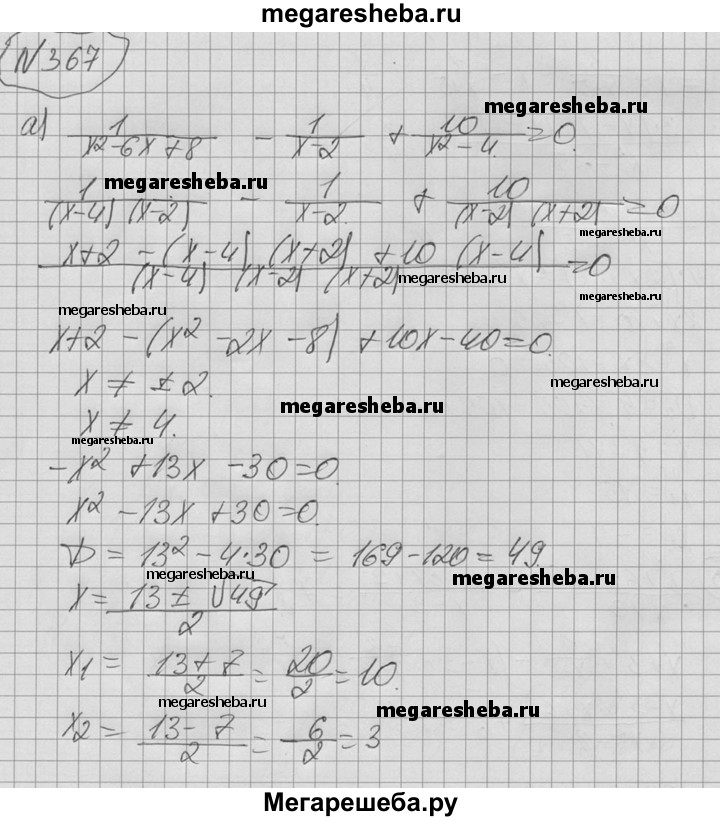 megaresheba.ru
N 367
а) 1/(x²-6x+8) - 1/(x-2) + 10/(x²-4) = 0.
megaresheba.ru
megaresheba.ru
1/((x-4)(x-2)) - 1/(x-2.) + 10/((x-2)(x+2)) = 0
megaresheba.ru
(x+2 - (x-4)(x+2) + 10(x-4))/((x-4)(x-2)(x+2)) = 0
megaresheba.ru
megaresheba.ru
megaresheba.ru
x+2 - (x² - 2x - 8) + 10x - 40 = 0.
x ≠ ± 2.
megaresheba.ru
megaresheba.ru
x ≠ 4.
megaresheba.ru
-x² + 13x - 30 = 0.
x² - 13x + 30 = 0.
D = 13² - 4·30 = 169 - 120 = 49.
megaresheba.ru
megaresheba.ru
x = (13 ± √49)/2
x₁ = (13+7)/2 = 20/2 = 10.
megaresheba.ru
megaresheba.ru
x₂ = (13-7)/2 = 6/2 = 3
Мегарешеба.ру